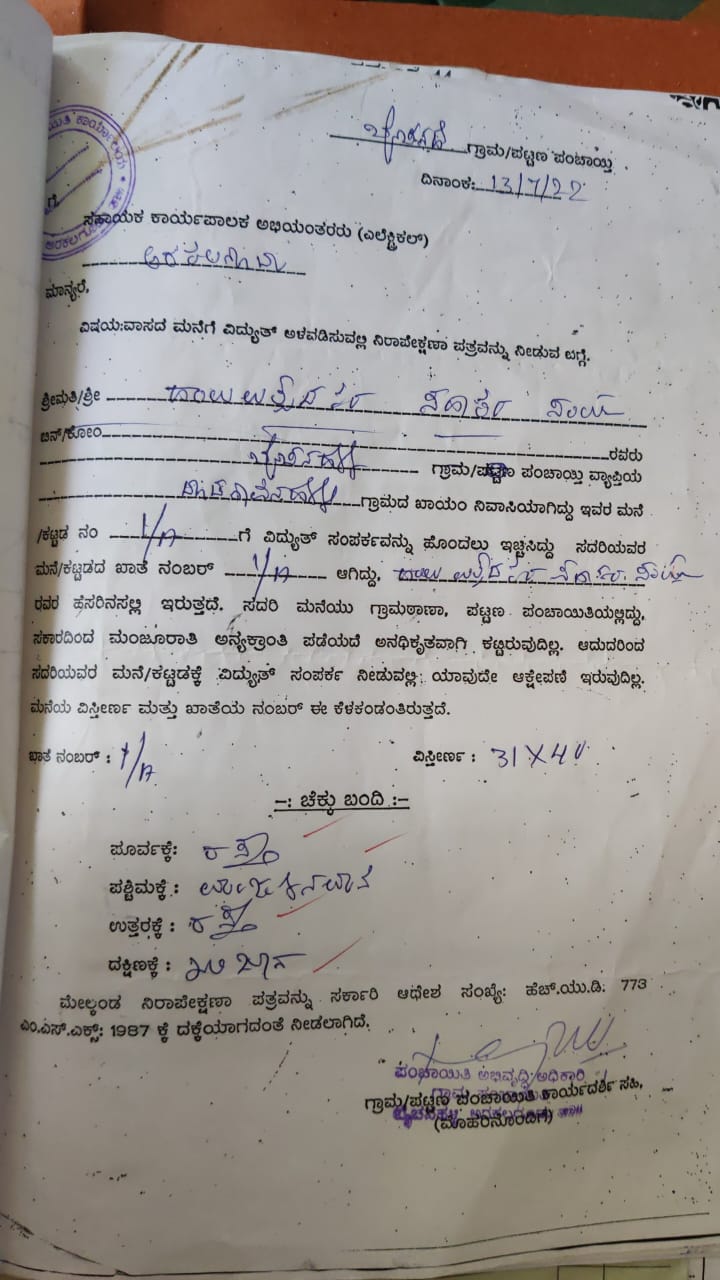 ಗ್ರಾಮ/ಪಟ್ಟಣ ಪಂಚಾಯ್ತಿ
ದಿನಾಂಕ: 13/7/22
ಸಹಾಯಕ ಕಾರ್ಯಪಾಲಕ ಅಭಿಯಂತರರು (ಎಲೆಕ್ಟ್ರಿಕಲ್)
ಅರಕಲಗೂಡು
ಮಾನ್ಯರೆ,
ವಿಷಯ:ವಾಸದ ಮನೆಗೆ ವಿದ್ಯುತ್ ಅಳವಡಿಸುವಲ್ಲಿ ನಿರಾಪೇಕ್ಷಣಾ ಪತ್ರವನ್ನು ನೀಡುವ ಬಗ್ಗೆ.
ಶ್ರೀಮತಿ/ಶ್ರೀ ಹಾಲು ಉತ್ಪಾದಕರ ಸಹಕಾರ ಸಂಘ
ಬಿನ್/ಕೋಂ ರವರು
ಗ್ರಾಮ/ಪಟ್ಟಣ ಪಂಚಾಯ್ತಿ ವ್ಯಾಪ್ತಿಯ
ಗ್ರಾಮದ ಖಾಯಂ ನಿವಾಸಿಯಾಗಿದ್ದು ಇವರ ಮನೆ
/ಕಟ್ಟಡ ನಂ 1/A ಗೆ ವಿದ್ಯುತ್ ಸಂಪರ್ಕವನ್ನು ಹೊಂದಲು ಇಚ್ಛಿಸಿದ್ದು ಸದರಿಯವರ
ಮನೆ/ಕಟ್ಟಡದ ಖಾತೆ ನಂಬರ್ 1/A ಆಗಿದ್ದು, ಹಾಲು ಉತ್ಪಾದಕರ ಸಹಕಾರ ಸಂಘ
ರವರ ಹೆಸರಿನಸಲ್ಲಿ ಇರುತ್ತದೆ. ಸದರಿ ಮನೆಯು ಗ್ರಾಮಠಾಣಾ, ಪಟ್ಟಣ ಪಂಚಾಯಿತಿಯಲ್ಲಿದ್ದು,
ಸಕಾರದಿಂದ ಮಂಜೂರಾತಿ ಅನ್ಯಕ್ರಾಂತಿ ಪಡೆಯದೆ ಅನಧಿಕೃತವಾಗಿ ಕಟ್ಟಿರುವುದಿಲ್ಲ. ಆದುದರಿಂದ
ಸದರಿಯವರ ಮನೆ/ಕಟ್ಟಡಕ್ಕೆ ವಿದ್ಯುತ್ ಸಂಪರ್ಕ ನೀಡುವಲ್ಲಿ ಯಾವುದೇ ಆಕ್ಷೇಪಣೆ ಇರುವುದಿಲ್ಲ.
ಮನೆಯ ವಿಸ್ತೀರ್ಣ ಮತ್ತು ಖಾತೆಯ ನಂಬರ್ ಈ ಕೆಳಕಂಡಂತಿರುತ್ತದೆ.
ಖಾತೆ ನಂಬರ್ : 1/A ವಿಸ್ತೀರ್ಣ : 31X40
-: ಚೆಕ್ಕು ಬಂದಿ :-
ಪೂರ್ವಕ್ಕೆ: ರಸ್ತೆ
ಪಶ್ಚಿಮಕ್ಕೆ :
ಉತ್ತರಕ್ಕೆ : ರಸ್ತೆ
ದಕ್ಷಿಣಕ್ಕೆ :
ಮೇಲ್ಕಂಡ ನಿರಾಪೇಕ್ಷಣಾ ಪತ್ರವನ್ನು ಸರ್ಕಾರಿ ಆಧೇಶ ಸಂಖ್ಯೆ: ಹೆಚ್.ಯು.ಡಿ. 773
ಎಂ.ಎಸ್.ಎಕ್ಸ್: 1987 ಕ್ಕೆ ದಕ್ಕೆಯಾಗದಂತೆ ನೀಡಲಾಗಿದೆ.
ಪಂಚಾಯಿತಿ ಅಭಿವೃದ್ಧಿ ಅಧಿಕಾರಿ
ಗ್ರಾಮ/ಪಟ್ಟಣ ಪಂಚಾಯಿತಿ ಕಾರ್ಯದರ್ಶಿ ಸಹಿ,
(ಮೊಹರಿನೊಂದಿಗೆ)